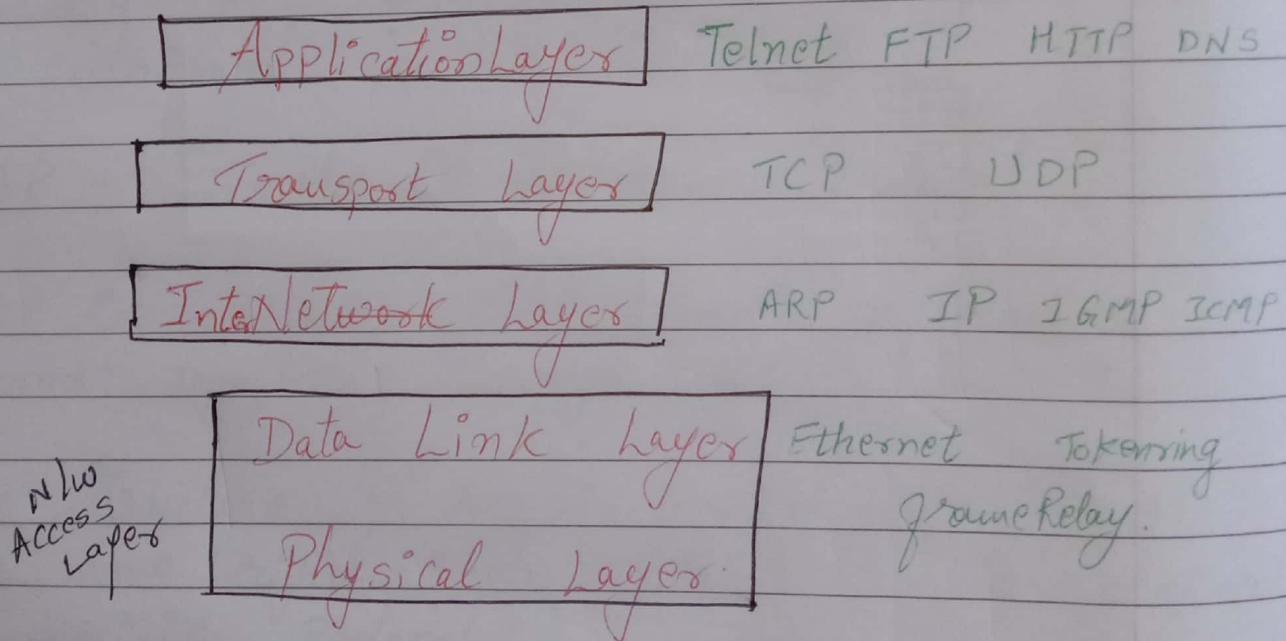 Application Layer Telnet FTP HTTP DNS
Transport Layer TCP UDP
InterNetwork Layer ARP IP IGMP ICMP
Data Link Layer Ethernet Tokenring
Frame Relay.
N/W
Access
Layer
Physical Layer